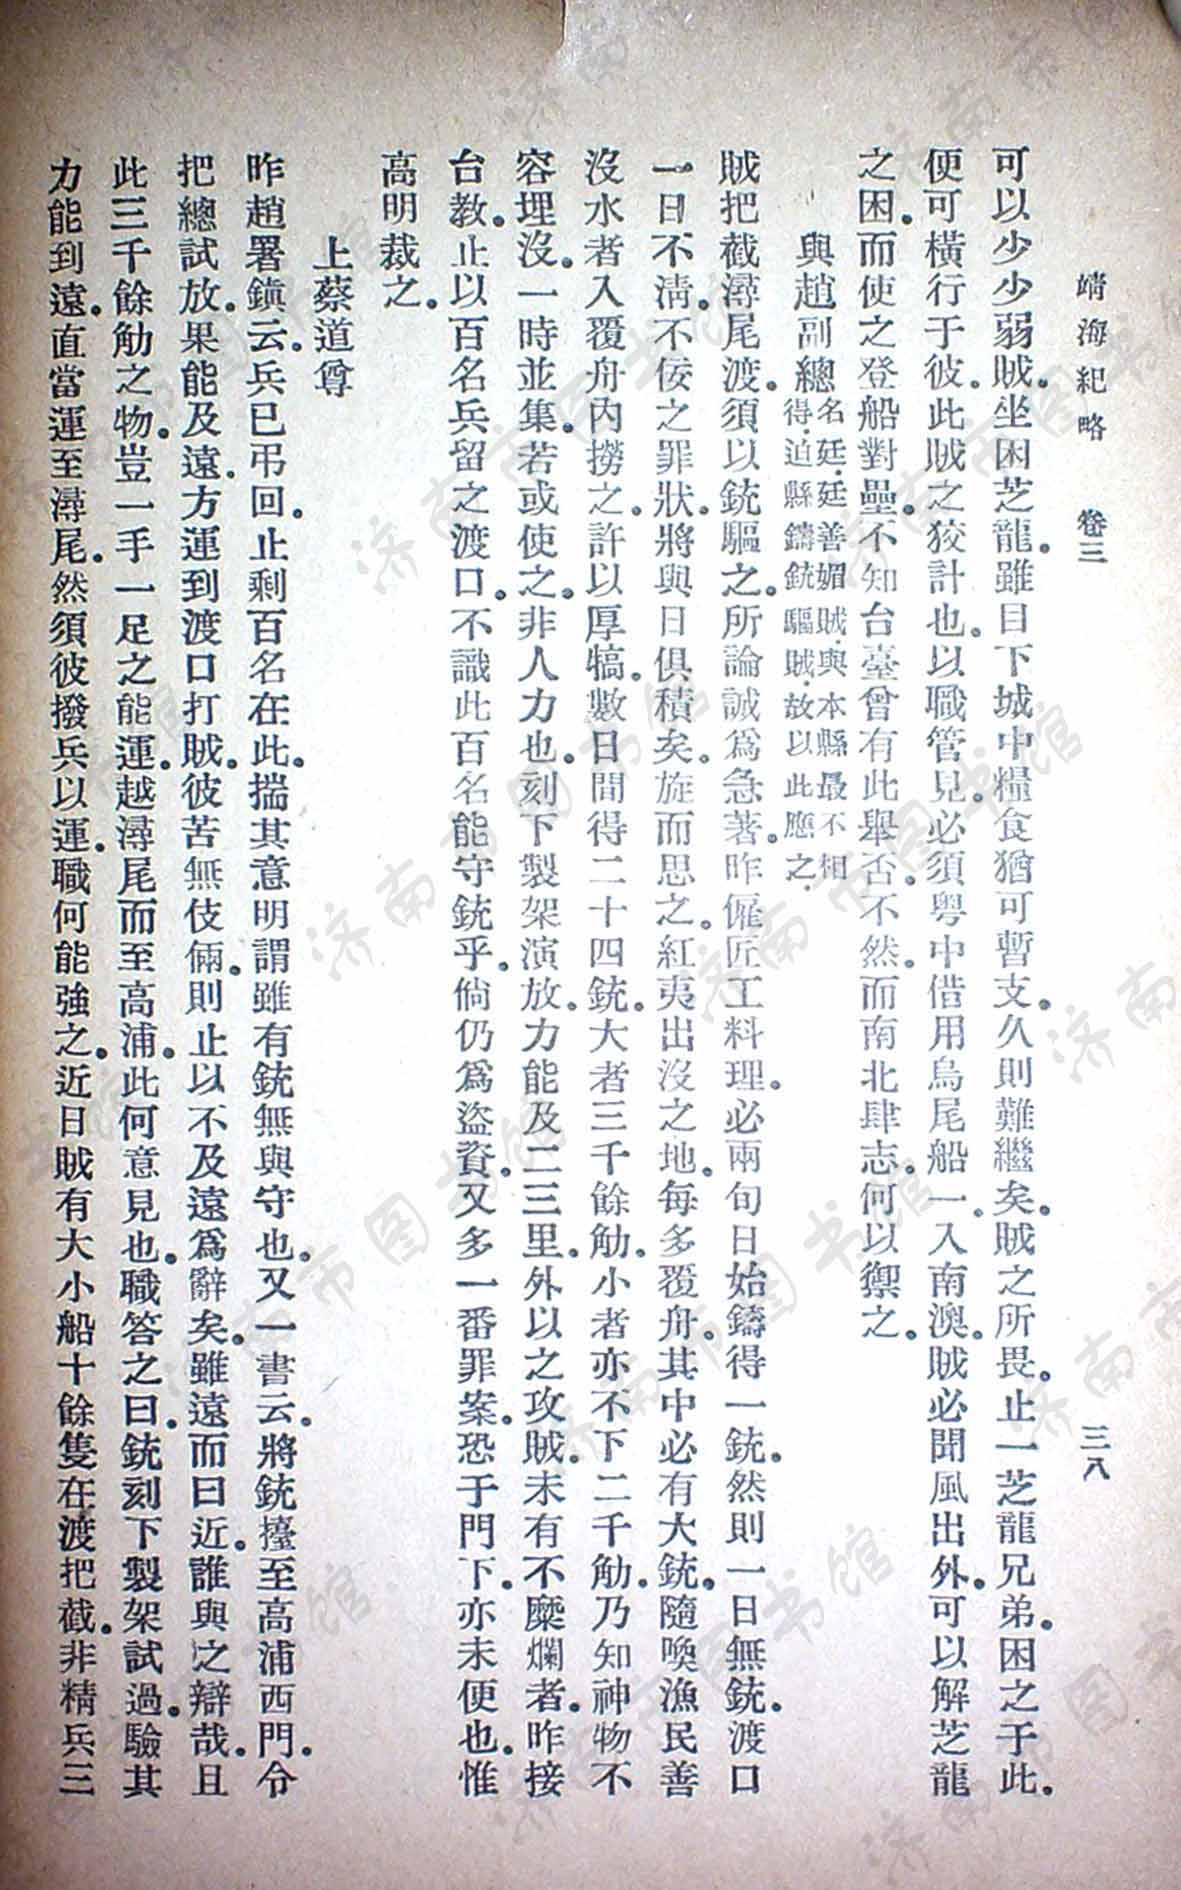 靖海紀略　卷三　三八
可以少少弱賊。坐困芝龍。雖目下城中糧食猶可暫支。久則難繼矣。賊之所畏。止一芝龍兄弟。困之于此。
便可橫行于彼。此賊之狡計也。以職管見。必須粵中借用烏尾船。一入南澳。賊必聞風出外。可以解芝龍
之困。而使之登船對壘。不知台臺曾有此舉否。不然。而南北肆志。何以禦之。
與趙副總名廷。廷善媚賊。與本縣最不相
得。迫縣鑄銃驅賊。故以此應之。
賊把截潯尾渡。須以銃驅之。所論誠爲急著。昨僱匠工料理。必兩旬日始鑄得一銃。然則一日無銃。渡口
一日不淸。不佞之罪狀。將與日俱積矣。旋而思之。紅夷出沒之地。每多覆舟。其中必有大銃。隨喚漁民善
沒水者入覆舟內撈之。許以厚犒。數日間得二十四銃。大者三千餘觔。小者亦不下二千觔。乃知神物不
容埋沒。一時並集。若或使之。非人力也。刻下製架演放。力能及二三里。外以之攻賊。未有不糜爛者。昨接
台教。止以百名兵留之渡口。不識此百名能守銃乎。倘仍爲盜資。又多一番罪案。恐于門下。亦未便也。惟
高明裁之。
上蔡道尊
昨趙署鎭云。兵已弔回。止剩百名在此。揣其意明謂雖有銃無與守也。又一書云。將銃擡至高浦西門。令
把總試放。果能及遠。方運到渡口打賊。彼苦無伎倆。則止以不及遠爲辭矣。雖遠而曰近。誰與之辯哉。且
此三千餘觔之物。豈一手一足之能運。越潯尾而至高浦。此何意見也。職答之曰。銃刻下製架試過。驗其
力能到遠。直當運至潯尾。然須彼撥兵以運。職何能強之。近日賊有大小船十餘隻在渡把截。非精兵三